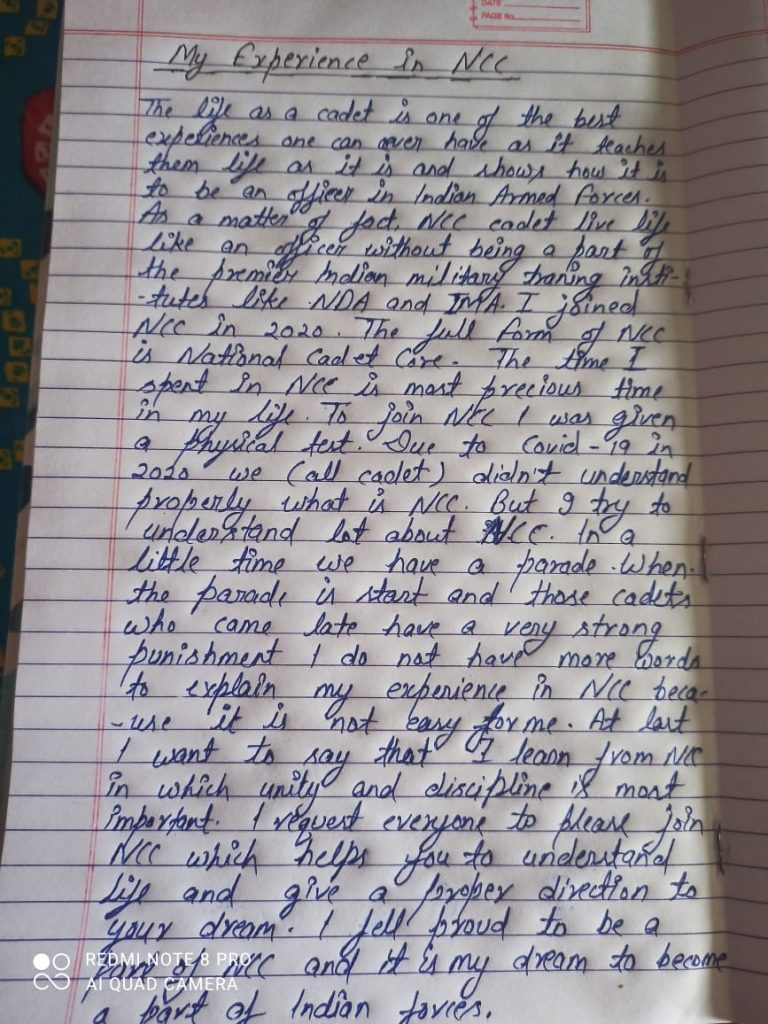 DATE
PAGE No.
My Experience in NCC
The life as a cadet is one of the best
experiences one can over have as it teaches
them life as it is and shows how it is
to be an officer in Indian Armed Forces.
As a matter of fact, NCC cadet live life
like an officer without being a part of
the premier Indian military traning insti-
-tutes like NDA and IMA. I joined
NCC in 2020. The full form of NCC
is National Cadet Core. The time I
spent in NCC is most precious time
in my life. To join NCC I was given
a physical test. Due to Covid-19 in
2020 we (all cadet) didn't understand
properly what is NCC. But I try to
understand lot about NCC. In a
little time we have a parade. When
the parade is start and those cadets
who came late have a very strong
punishment I do not have more words
to explain my experience in NCC beca-
-use it is not easy for me. At last
I want to say that I learn from NCC
in which unity and discipline is most
important. I request everyone to please join
NCC which helps you to understand
life and give a proper direction to
your dream. I fell proud to be a
part of NCC and it is my dream to become
a part of Indian forces.
REDMI NOTE 8 PRO
AI QUAD CAMERA